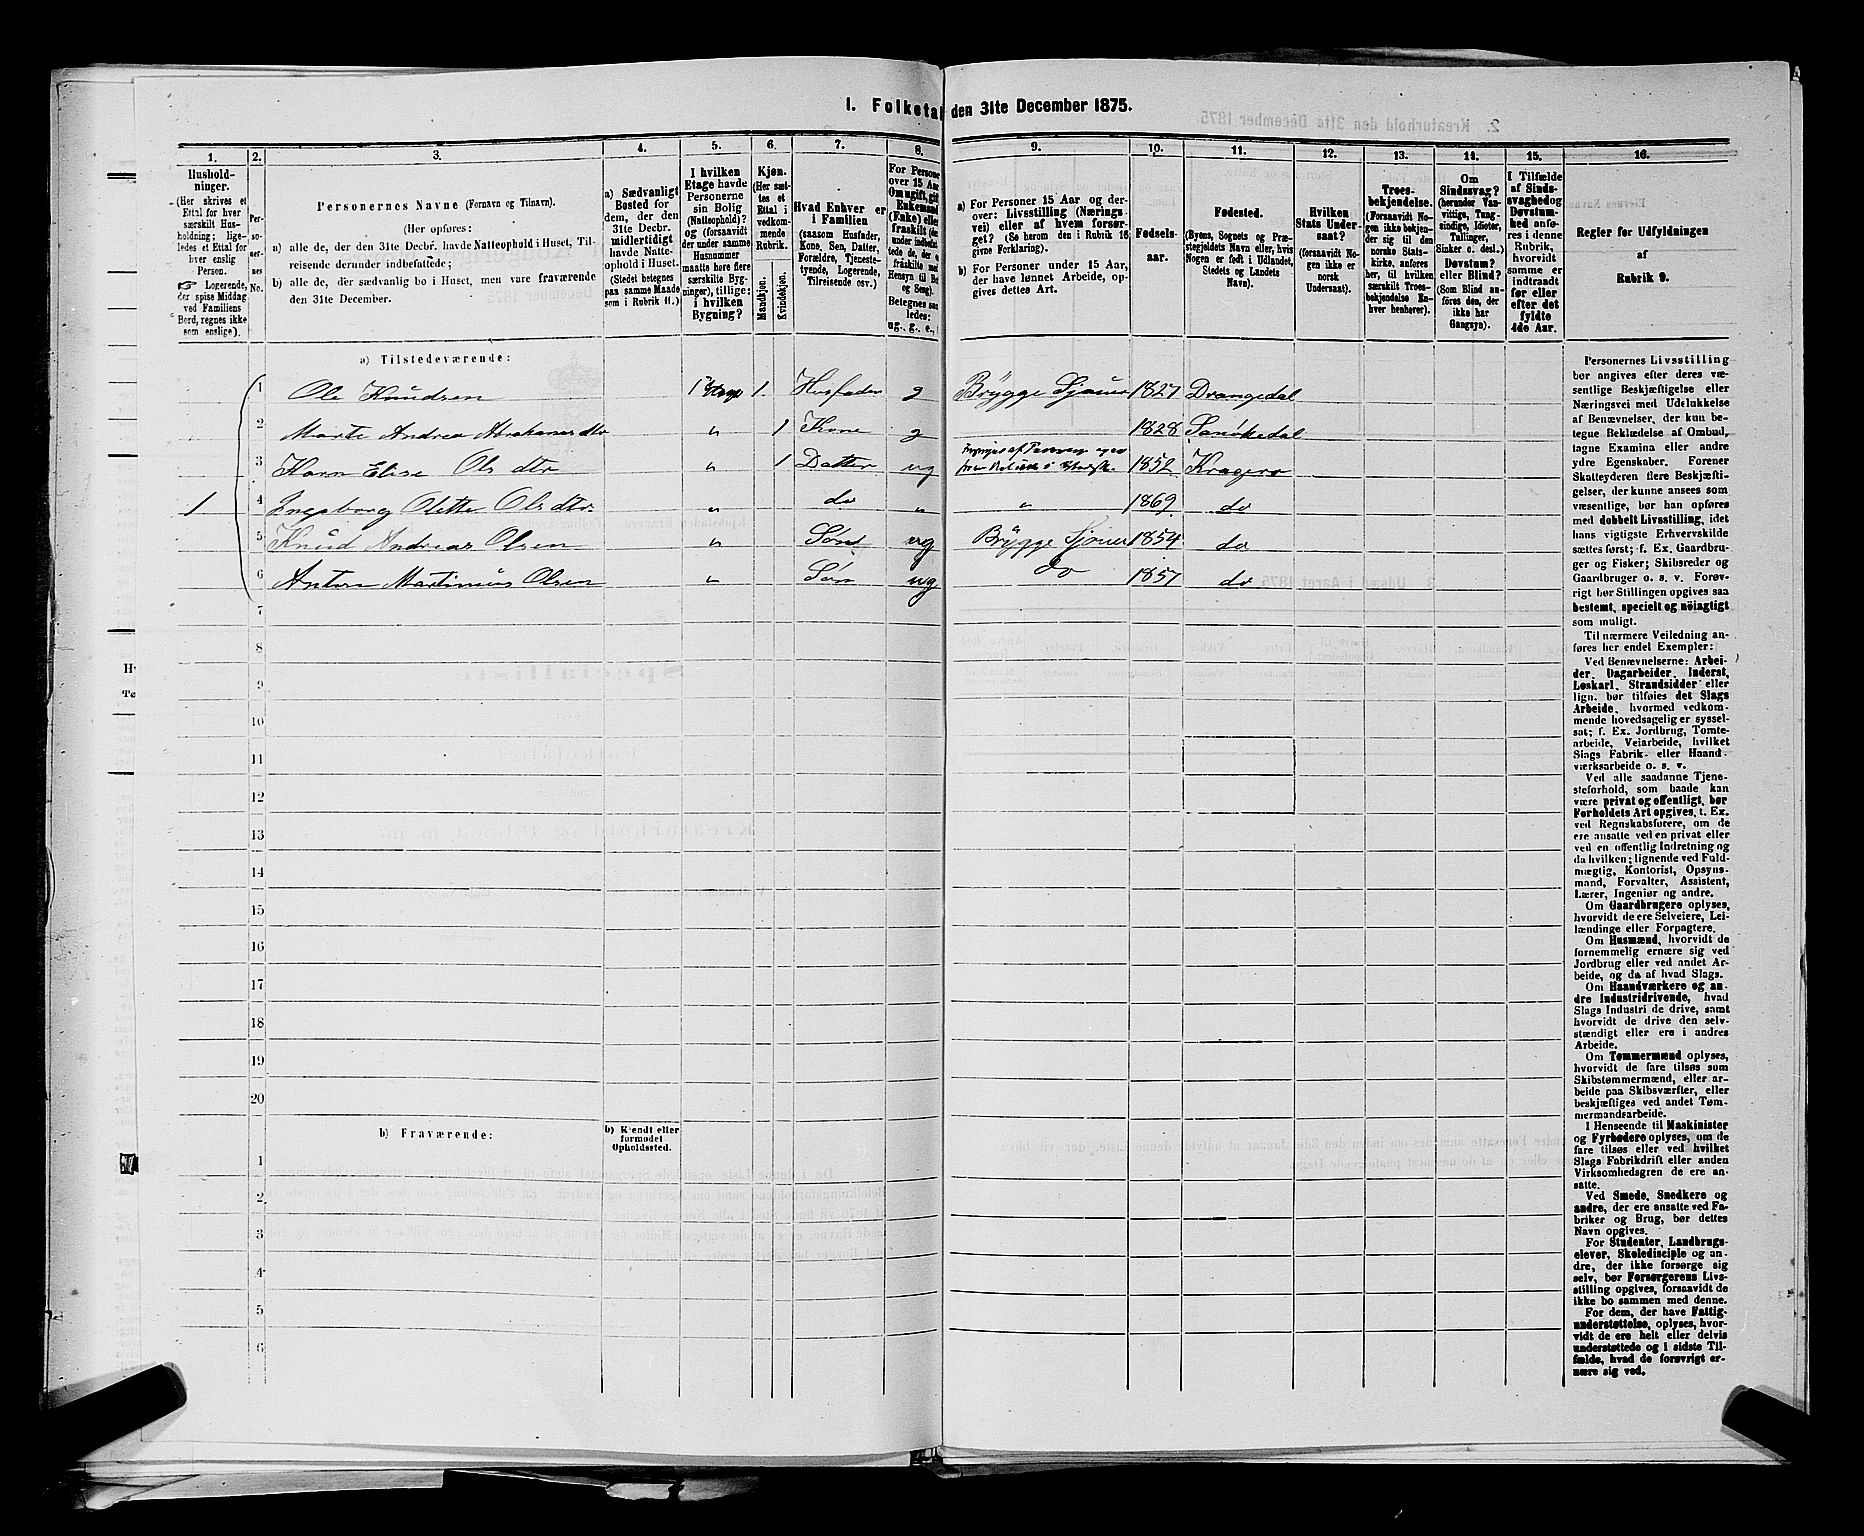 I. Folketal den 31te December 1875.
1.
Husholdninger.
(Her skrives et
Ettal for hver
særskilt Husholdning; ligeledes et Ettal for
hver enslig
Person.
Logerende,
der spise Middag
ved Familiens
Bord, regnes ikke
som enslige).
2.
Personernes
No.
3.
Personernes Navne (Fornavn og Tilnavn).
(Her opføres:
a) alle de, der den 31te Decbr. havde Natteophold i Huset, Tilreisende derunder indbefattede;
b) alle de, der sædvanlig bo i Huset, men vare fraværende
den 31te December.
4.
a) Sædvanligt
Bosted for
dem, der den
31te Decbr.
midlertidigt
havde Natteophold i Huset.
(Stedet betegnes
paa samme Maade
som i Rubrik 11.)
5.
I hvilken
Etage havde
Personerne
sin Bolig
(Natteophold)?
og (forsaavidt
der under samme
Husnummer
maatte høre flere
særskilte Bygninger), tillige:
i hvilken
Bygning?
6.
Kjøn.
(Her sættes et
Ettal i
vedkommende
Rubrik.
Mandkjøn.
Kvindekjøn.
7.
Hvad Enhver er
i Familien
(saasom Husfader,
Kone, Søn, Datter,
Forældre, Tjenestetyende, Logerende,
Tilreisende osv.)
8.
For Personer
over 15 Aar
Om ugift, gift
Enkemand
(Enke) eller
fraskilt
Betegnes saaledes:
ug., g., e.,
9.
a) For Personer 15 Aar og derover: Livsstilling (Næringsvei) eller af hvem forsørget? (Se herom den i Rubrik 16
givne Forklaring).
b) For Personer under 15 Aar,
der have lønnet Arbeide, opgives dettes Art.
10.
Fødselsaar.
11.
Fødested.
(Byens, Sognets og Præstegjeldets Navn eller, hvis
Nogen er født i Udlandet,
Stedets og Landets
Navn).
12.
Hvilken
Stats Undersaat?
(forsaavidt Nogen ikke er
norsk
Undersaat).
13.
Troesbekjendelse.
(Forsaavidt Nogen ikke bekjender sig til den
norske Statskirke, anføres
her, til hvilken
særskilt Troesbekjendelse Enhver henhører).
14.
Om
Sindssvag?
(herunder Vanvittige, Tungsindige, Idioter,
Tullinger,
Sinker o. desl.)
Døvstum?
eller Blind?
(Som Blind anføres den, der
ikke har
Gangsyn).
15.
I Tilfælde
af Sindssvaghed og
Døvstumhed anføres i denne
Rubrik,
hvorvidt
samme er
indtraadt
før eller
efter det
fyldte
4de Aar.
16.
Regler for Udfyldningen
af
Rubrik 9.
a) Tilstedeværende:
1 Ole Knudsen 1 Etage 1. Husfader g Brygge Sjouer 1827 Drangedal
2 Marte Andrea Abrahamsdtr " 1 Kone g 1828 Sanökedal
3 Karn Elise Olsdtr " 1 Datter ug 1852 Kragerø
1 4 Ingeborg Olette Olsdtr " do " " 1869 do
5 Knud Andreas Olsen " Sønt ug Brygge Sjouer 1854 do
6 Anton Martinius Olsen " Søn ug do 1857 do
7
8
9
10
11
12
13
14
15
16
17
18
19
20
b) Fraværende:
b) Kjendt eller
formodet
Opholdssted.
1
2
3
4
5
6
Personernes Livsstilling
bør angives efter deres væsentlige Beskjæftigelse eller
Næringsvei med Udelukkelse
af Benævnelser, der kun betegne Beklædelse af Ombud,
tagne Examina eller andre
ydre Egenskaber. Forener
Skatteyderen flere Beskjæftigelser, der kunne ansees som
væsentlige, bør han opføres
med dobbelt Livsstilling, idet
hans vigtigste Erhvervskilde
sættes først; f. Ex. Gaardbruger og Fisker; Skibsreder og
Gaardbruger o. s. v. Forøvrigt bør Stillingen opgives saa
bestemt, specielt og nöiagtigt
som muligt.
Til nærmere Veiledning anføres her endel Exempler:
Ved Benævnelserne: Arbeider, Dagarbeider, Inderst,
Løskarl, Strandsidder eller
lign. bør tilføies det Slags
Arbeide, hvormed vedkommende hovedsagelig er sysselsat; f. Ex. Jordbrug, Tomtearbeide, Veiarbeide, hvilket
Slags Fabrik- eller Haandværksarbeide o. s. v.
Ved alle saadanne Tjenesteforhold, som baade kan
være privat og offentligt, bør
Forholdets Art opgives, t. Ex.
ved Regnskabsførere, om de
ere ansatte ved en privat eller
ved en offentlig Indretning og
da hvilken; lignende ved Fuldmægtig, Kontorist, Opsynsmand, Forvalter, Assistent,
Lærer, Ingeniør og andre.
Om Gaardbrugere oplyses,
hvorvidt de ere Selveiere, Leilændinge eller Forpagtere.
Om Husmænd, hvorvidt de
fornemmelig ernære sig ved
Jordbrug eller ved andet Arbeide, og da af hvad Slags.
Om Haandværkere og andre Industridrivende, hvad
Slags Industri de drive, samt
hvorvidt de drive den selvstændigt eller ere i andres
Arbeide.
Om Tømmermænd oplyses,
hvorvidt de fare tilsøs som
Skibstømmermænd, eller arbeide paa Skibsværfter, eller
beskjæftiges ved andet Tømmermandsarbeide.
I Henseende til Maskinister
og Fyrbødere oplyses, om de
fare tilsøs eller ved hvilket
Slags Fabrikdrift eller anden
Virksomhedsgren de ere ansatte.
Ved Smede, Snedkere og
andre, der ere ansatte ved Fabriker og Brug, bør dettes
Navn opgives.
For Studenter, Landbrugselever, Skoledisciple og andre, der ikke forsørge sig
selv, bør Forsørgerens Livsstilling opgives, forsaavidt de
ikke bo sammen med denne.
For dem, der have Fattigunderstøttelse, oplyses, hvorvidt de ere helt eller delvis
understøttede og i sidste Tilfælde, hvad de forøvrigt ernære sig ved.